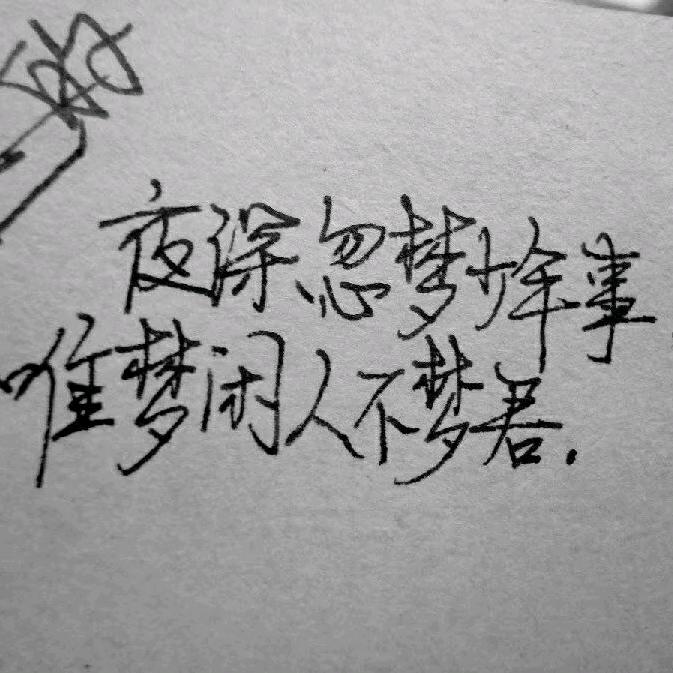 夜深忽梦少年事
唯梦闲人不梦君.